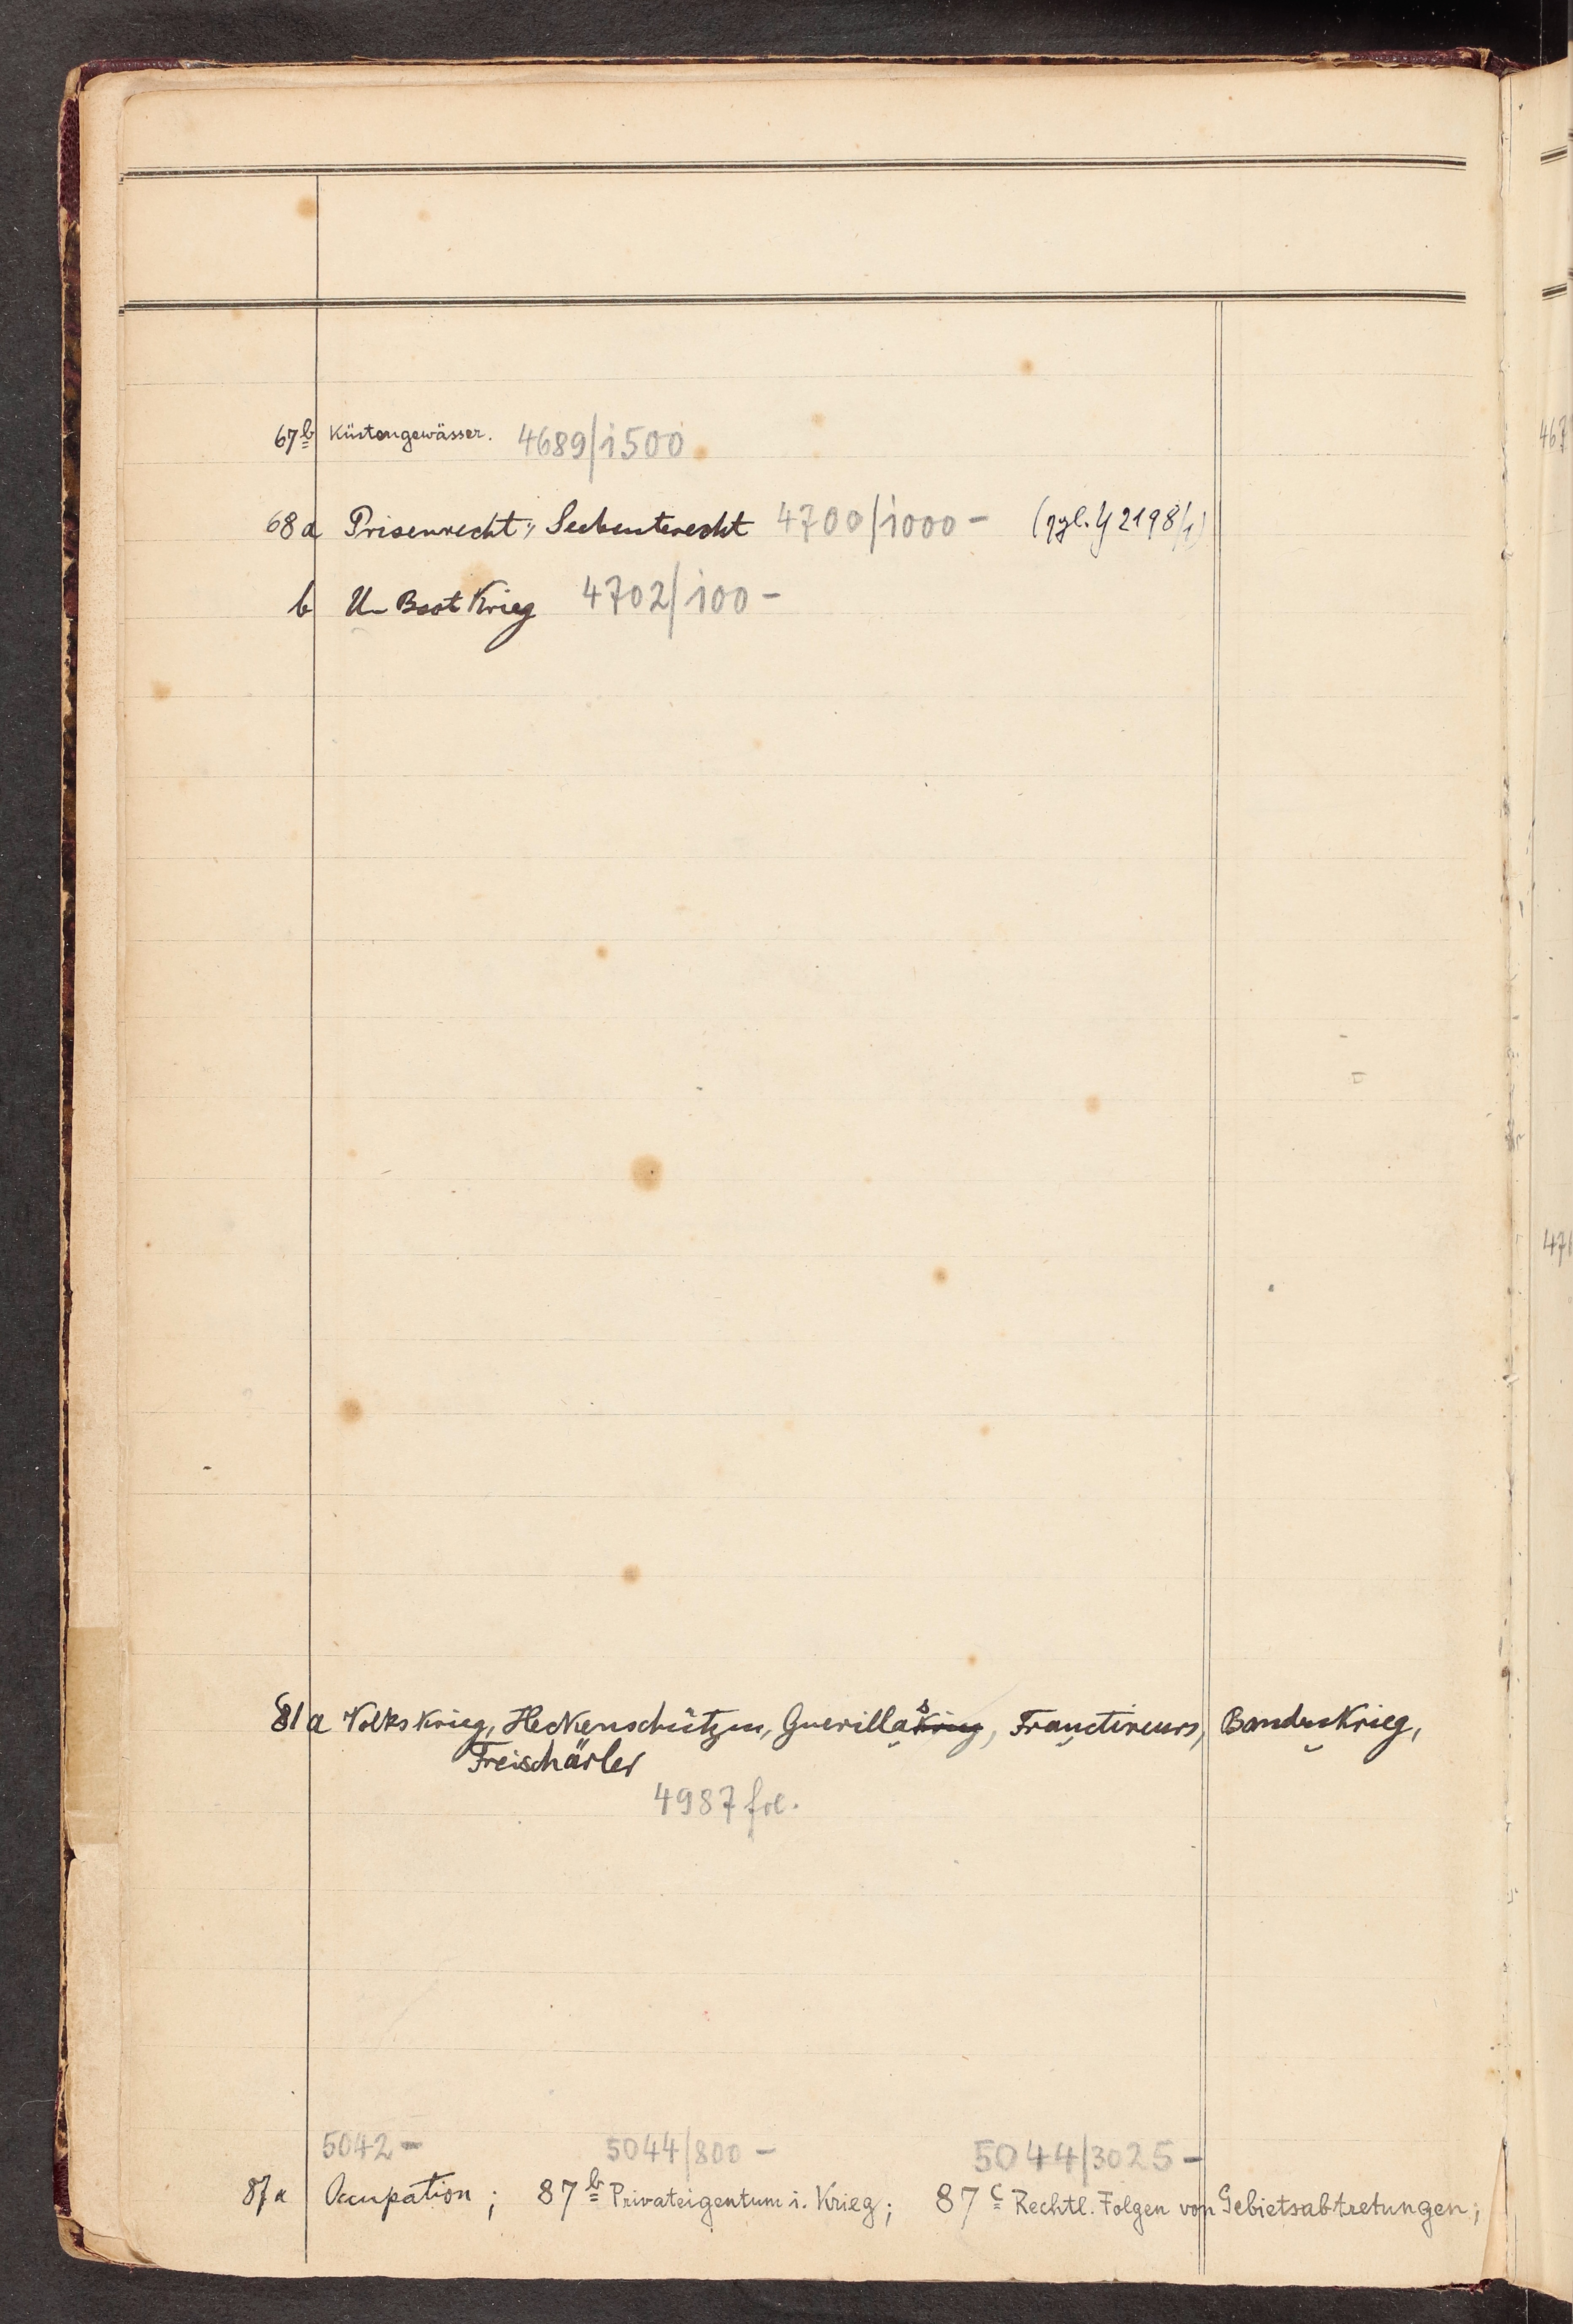 67b Küstengewässer. 4689/1500
68 a Prisenrecht, Seebeuterecht 4700/1000 - (vgl. 2198/1)
b U-Boot Krieg 4702/100 -
81 a Volkskrieg, Heckenschützen, Guerillas, Franctireurs, Bandenkrieg,
Freischärler
4987 fol.
5042 - 5044/800 - 5044/3025 -
87a Occupation; 87b Privateigentum i. Krieg; 87c Rechtl. Folgen von Gebietsabtretungen;
467
476